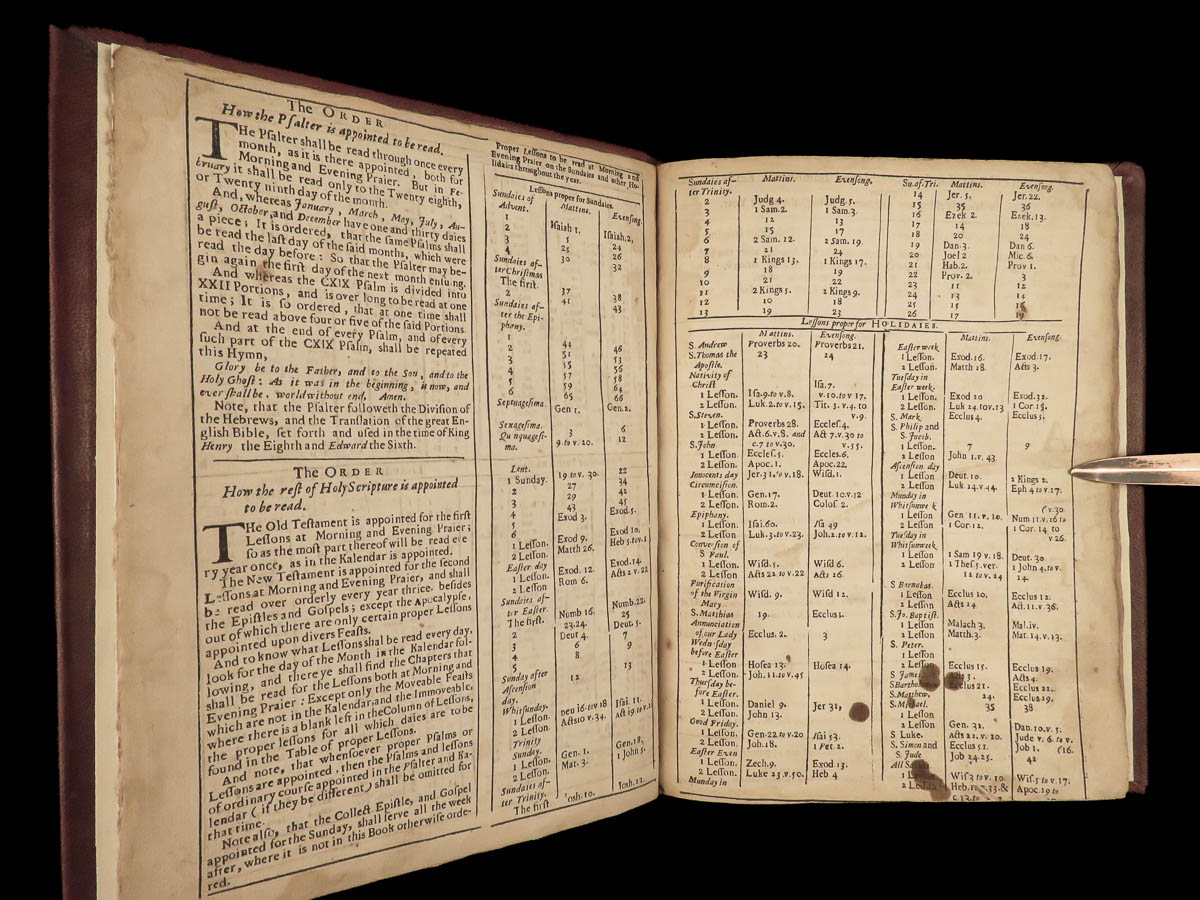 The ORDER
How the Pſalter is appointed to be read.
THe Pſalter ſhall be read through once every
month, as it is there appointed, both for
Morning and Evening Praier. But in Fe-
bruary it ſhall be read only to the Twenty eighth,
or Twenty ninth day of the month.
And, whereas January, March, May, July, Au-
guſt, October, and December have one and thirty daies
a piece; It is ordered, that the ſame Pſalms ſhall
be read the laſt day of the ſaid months, which were
read the day before: So that the Pſalter may be-
gin again the firſt day of the next month enſuing.
And whereas the CXIX Pſalm is divided into
XXII Portions, and is over long to be read at one
time; It is ſo ordered, that at one time ſhall
not be read above four or five of the ſaid Portions.
And at the end of every Pſalm, and of every
ſuch part of the CXIX Pſalm, ſhall be repeated
this Hymn,
Glory be to the Father, and to the Son, and to the
Holy Ghoſt: As it was in the beginning, is now, and
ever ſhall be, world without end. Amen.
Note, that the Pſalter followeth the Diviſion of
the Hebrews, and the Tranſlation of the great En-
gliſh Bible, ſet forth and uſed in the time of King
Henry the Eighth and Edward the Sixth.
The ORDER
How the reſt of Holy Scripture is appointed
to be read.
THe Old Teſtament is appointed for the firſt
Leſſons at Morning and Evening Praier;
ſo as the moſt part thereof will be read eve
ry year once, as in the Kalendar is appointed.
The New Teſtament is appointed for the ſecond
Leſſons at Morning and Evening Praier, and ſhall
be read over orderly every year thrice, beſides
the Epiſtles and Goſpels; except the Apocalypſe,
out of which there are only certain proper Leſſons
appointed upon divers Feaſts.
And to know what Leſſons ſhal be read every day,
look for the day of the Month in the Kalendar fol-
lowing, and there ye ſhall find the Chapters that
ſhall be read for the Leſſons both at Morning and
Evening Praier: Except only the Moveable Feaſts
which are not in the Kalendar, and the Immoveable,
where there is a blank left in the Column of Leſſons,
the proper leſſons for all which daies are to be
found in the Table of proper Leſſons.
And note, that whenſoever proper Pſalms or
Leſſons are appointed, then the Pſalms and leſſons
of ordinary courſe appointed in the Pſalter and Ka-
lendar (if they be different) ſhall be omitted for
that time.
Note alſo, that the Collect Epiſtle, and Goſpel
appointed for the Sunday, ſhall ſerve all the week
after, where it is not in this Book otherwiſe orde-
red.
Proper Leſſons to be read at Morning and
Evening Praier on the Sundaies and other Ho-
lidaies throughout the year.
Leſſons proper for Sundaies.
Sundaies of Mattins. Evenſong.
Advent.
1 Iſaiah 1. Iſaiah 2.
2 5 24
3 25 26
4 30 32
Sundaies af-
ter Chriſtmas
The firſt. 37 38
2 41 43
Sundaies af-
ter the Epi-
phany.
1 44 46
2 51 53
3 55 56
4 57 58
5 59 64
6 65 66
Septuageſima Gen 1. Gen. 2.
Sexageſima. 3 6
Quinquageſi- 9 to v. 20. 12
ma.
Lent.
1 Sunday. 19 to v. 30. 22
2 27 34
3 29 42
4 43 45
5 Exod 3. Exod 5.
6
1 Leſſon. Exod 9. Exod 10.
2 Leſſon. Matth 26. Heb 5 to v. 1
Eaſter day
1 Leſſon. Exod. 12. Exod. 14.
2 Leſſon. Rom 6. Acts 2 v. 22
Sundaies af-
ter Eaſter.
The firſt. Numb 16. Numb. 22.
2 23.24. 25
3 Deut 4. Deut. 5.
4 6 7
5 8 9
Sunday after
Aſcenſion
day. 12 13
Whitſunday.
1 Leſſon. Deu 16 to v 18 Iſai. 11.
2 Leſſon. Acts 10 v. 34. Act 19 to v. 2
Trinity
Sunday.
1 Leſſon. Gen. 1. Gen. 18.
2 Leſſon. Mat. 3. 1 John 5.
Sundaies af-
ter Trinity.
The firſt Joſh. 10. Joſh. 23.
Sundaies af- Mattins. Evenſong.
ter Trinity.
2 Judg 4. Judg. 5.
3 1 Sam. 2. 1 Sam. 3.
4 12 13
5 15 17
6 2 Sam. 12. 2 Sam. 19.
7 21 24
8 1 Kings 13. 1 Kings 17.
9 18 19
10 21 22
11 2 Kings 5. 2 Kings 9.
12 10 18
13 19 23
Su. af. Tri. Mattins. Evenſong.
14 Jer. 5. Jer. 22.
15 35 36
16 Ezek 2. Ezek. 13.
17 14 18
18 20 24
19 Dan. 3. Dan 6.
20 Joel 2 Mic. 6.
21 Hab. 2. Prov 1.
22 Prov. 2. 3
23 11 12
24 13 14
25 15 16
26 17 19
Leſſons proper for HOLIDAIES.
Mattins. Evenſong.
S. Andrew Proverbs 20. Proverbs 21.
S. Thomas the 23 24
Apoſtle.
Nativity of
Chriſt
1 Leſſon. Iſa. 9. to v. 8. Iſa. 7.
v. 10. to v 17.
2 Leſſon. Luk. 2. to v. 15. Tit. 3. v. 4. to
v. 9.
S. Steven.
1 Leſſon. Proverbs 28. Eccleſ. 4.
2 Leſſon. Act. 6. v. 8. and Act 7. v. 30 to
c. 7 to v. 30. v. 55.
S. John.
1 Leſſon. Eccleſ. 5. Eccleſ. 6.
2 Leſſon. Apoc. 1. Apoc. 22.
Innocents day Jer. 31. to v. 18. Wiſd. 1.
Circumciſion.
1 Leſſon. Gen. 17. Deut. 10. v. 12
2 Leſſon. Rom. 2. Coloſ. 2.
Epiphany.
1 Leſſon. Iſai. 60. Iſa 49
2 Leſſon. Luk. 3. to v. 23. Joh. 2. to v. 12.
Converſion of
S Paul.
1 Leſſon. Wiſd. 5. Wiſd 6.
2 Leſſon. Acts 22. to v. 22 Acts 26.
Purification
of the Virgin Wiſd. 9. Wiſd 12.
Mary
S. Matthias 19. Eccluſ 1.
Annunciation
of our Lady Eccluſ. 2. 3
Wedneſday
before Eaſter
1 Leſſon. Hoſea 13. Hoſea 14.
2 Leſſon. Joh. 11. to v. 45
Thurſday be-
fore Eaſter.
1 Leſſon. Daniel 9. Jer 31,
2 Leſſon. John 13.
Good Friday.
1 Leſſon. Gen. 22 to v. 20 Iſai 53.
2 Leſſon. Joh. 18. 1 Pet. 2.
Eaſter Even
1 Leſſon. Zech. 9. Exod 13.
2 Leſſon. Luke 23. v. 50. Heb 4
Munday in
Mattins. Evenſong.
Eaſter week
1 Leſſon. Exod. 16. Exod. 17.
2 Leſſon. Matth 28. Acts 3.
Tueſday in
Eaſter week.
1 Leſſon. Exod 20 Exod. 32.
2 Leſſon. Luk 24. to v. 13 1 Cor. 15.
S. Mark. Eccluſ 4. Eccluſ 5.
S. Philip and
S. Jacob.
1 Leſſon 7 9
2 Leſſon John 1. v. 43.
Aſcenſion day
1 Leſſon Deut. 10. 2 Kings 2.
2 Leſſon Luk 24. v. 44 Eph 4 to v. 17.
Munday in
Whitſunweek (v. 30
1 Leſſon Gen 11. v. 10. Num 11. v. 16 to
2 Leſſon 1 Cor. 12. 1 Cor. 14 to
v 26.
Tueſday in
Whitſunweek
1 Leſſon 1 Sam 19 v. 18. Deut. 30
2 Leſſon 1 Theſ 5. ver. 1 John 4. to v.
12 to v. 24 14
S Barnabas.
1 Leſſon Eccluſ 10. Eccluſ 12.
2 Leſſon Acts 14 Act. 11. v. 36.
S. Jo. Baptiſt.
1 Leſſon Malach 3. Mal. iv.
2 Leſſon Matth. 3. Mat. 14. v. 13.
S. Peter.
1 Leſſon Eccluſ 15. Eccluſ 19.
2 Leſſon Acts 3. Acts 4.
S James Eccluſ 21. Eccluſ 22.
S Bartholomew 24. Eccluſ 29.
S. Matthew. 35 38
S. Michael.
1 Leſſon Gen. 32. Dan. 10. v. 5.
2 Leſſon Acts 12. v. 20. Jude v. 6. to v.
S. Luke. Eccluſ 51. Job 1. (16.
S. Simon and Job 24.25. 42
S. Jude
All Saints
1 Leſſon Wiſ 3 to v. 10. Wiſ 5. to v. 17.
2 Leſſon Heb. 11. v. 33. & Apoc. 19 to
c. 12. to v. 7